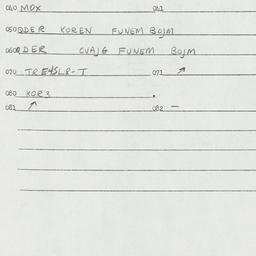 040 MDX 041
050 DER KOREN FUNEM BOJM
060 DER CVAJG FUNEM BOJM
070 TRE45L8-T 071 ↗
080 KOR3
081 ↗ 082 —